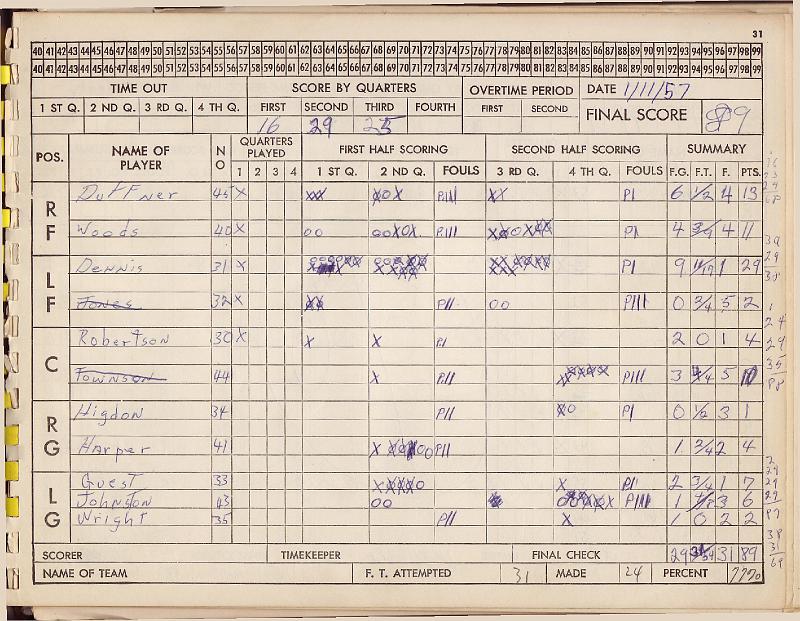 31
40 41 42 43 44 45 46 47 48 49 50 51 52 53 54 55 56 57 58 59 60 61 62 63 64 65 66 67 68 69 70 71 72 73 74 75 76 77 78 79 80 81 82 83 84 85 86 87 88 89 90 91 92 93 94 95 96 97 98 99
40 41 42 43 44 45 46 47 48 49 50 51 52 53 54 55 56 57 58 59 60 61 62 63 64 65 66 67 68 69 70 71 72 73 74 75 76 77 78 79 80 81 82 83 84 85 86 87 88 89 90 91 92 93 94 95 96 97 98 99
TIME OUT SCORE BY QUARTERS OVERTIME PERIOD DATE 1/11/57
1 ST Q. 2 ND Q. 3 RD Q. 4 TH Q. FIRST SECOND THIRD FOURTH FIRST SECOND FINAL SCORE 89
16 29 25
POS. NAME OF PLAYER NO QUARTERS PLAYED FIRST HALF SCORING SECOND HALF SCORING SUMMARY
1 2 3 4 1 ST Q. 2 ND Q. FOULS 3 RD Q. 4 TH Q. FOULS F.G. F.T. F. PTS.
RF Duffner 45 X XXX XOX PIII XX PI 6 1/2 4 13
Woods 40 X OO PIII PI 4 3/9 4 11
LF Dennis 31 X PI 9 11/19 1 29
Jones 32 X XX PII OO PIII 0 3/4 5 2
C Robertson 30 X X X PI 2 0 1 4
Townson 44 X PII PIII 3 4/4 5 10
RG Higdon 34 PII XO PI 0 1/2 3 1
Harper 41 PII 1 3/4 2 4
LG Guest 33 X PI 2 3/4 1 7
Johnston 43 OO PIII 1 3 6
Wright 35 PII X 1 0 2 2
SCORER TIMEKEEPER FINAL CHECK 29 31/54 31 89
NAME OF TEAM F. T. ATTEMPTED 31 MADE 24 PERCENT 77%